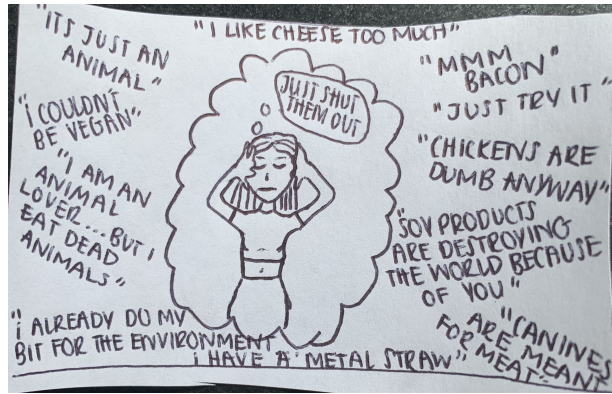 "ITS JUST AN
ANIMAL"
"I LIKE CHEESE TOO MUCH"
"MMM
BACON"
"JUST TRY IT"
JUST SHUT
THEM OUT
"I COULDN'T
BE VEGAN"
"CHICKENS ARE
DUMB ANYWAY"
"I AM AN
ANIMAL
LOVER...BUT I
EAT DEAD
ANIMALS"
"SOY PRODUCTS
ARE DESTROYING
THE WORLD BECAUSE
OF YOU"
"I ALREADY DO MY
BIT FOR THE ENVIRONMENT
I HAVE A METAL STRAW"
"CANINES
ARE MEANT
FOR MEAT"